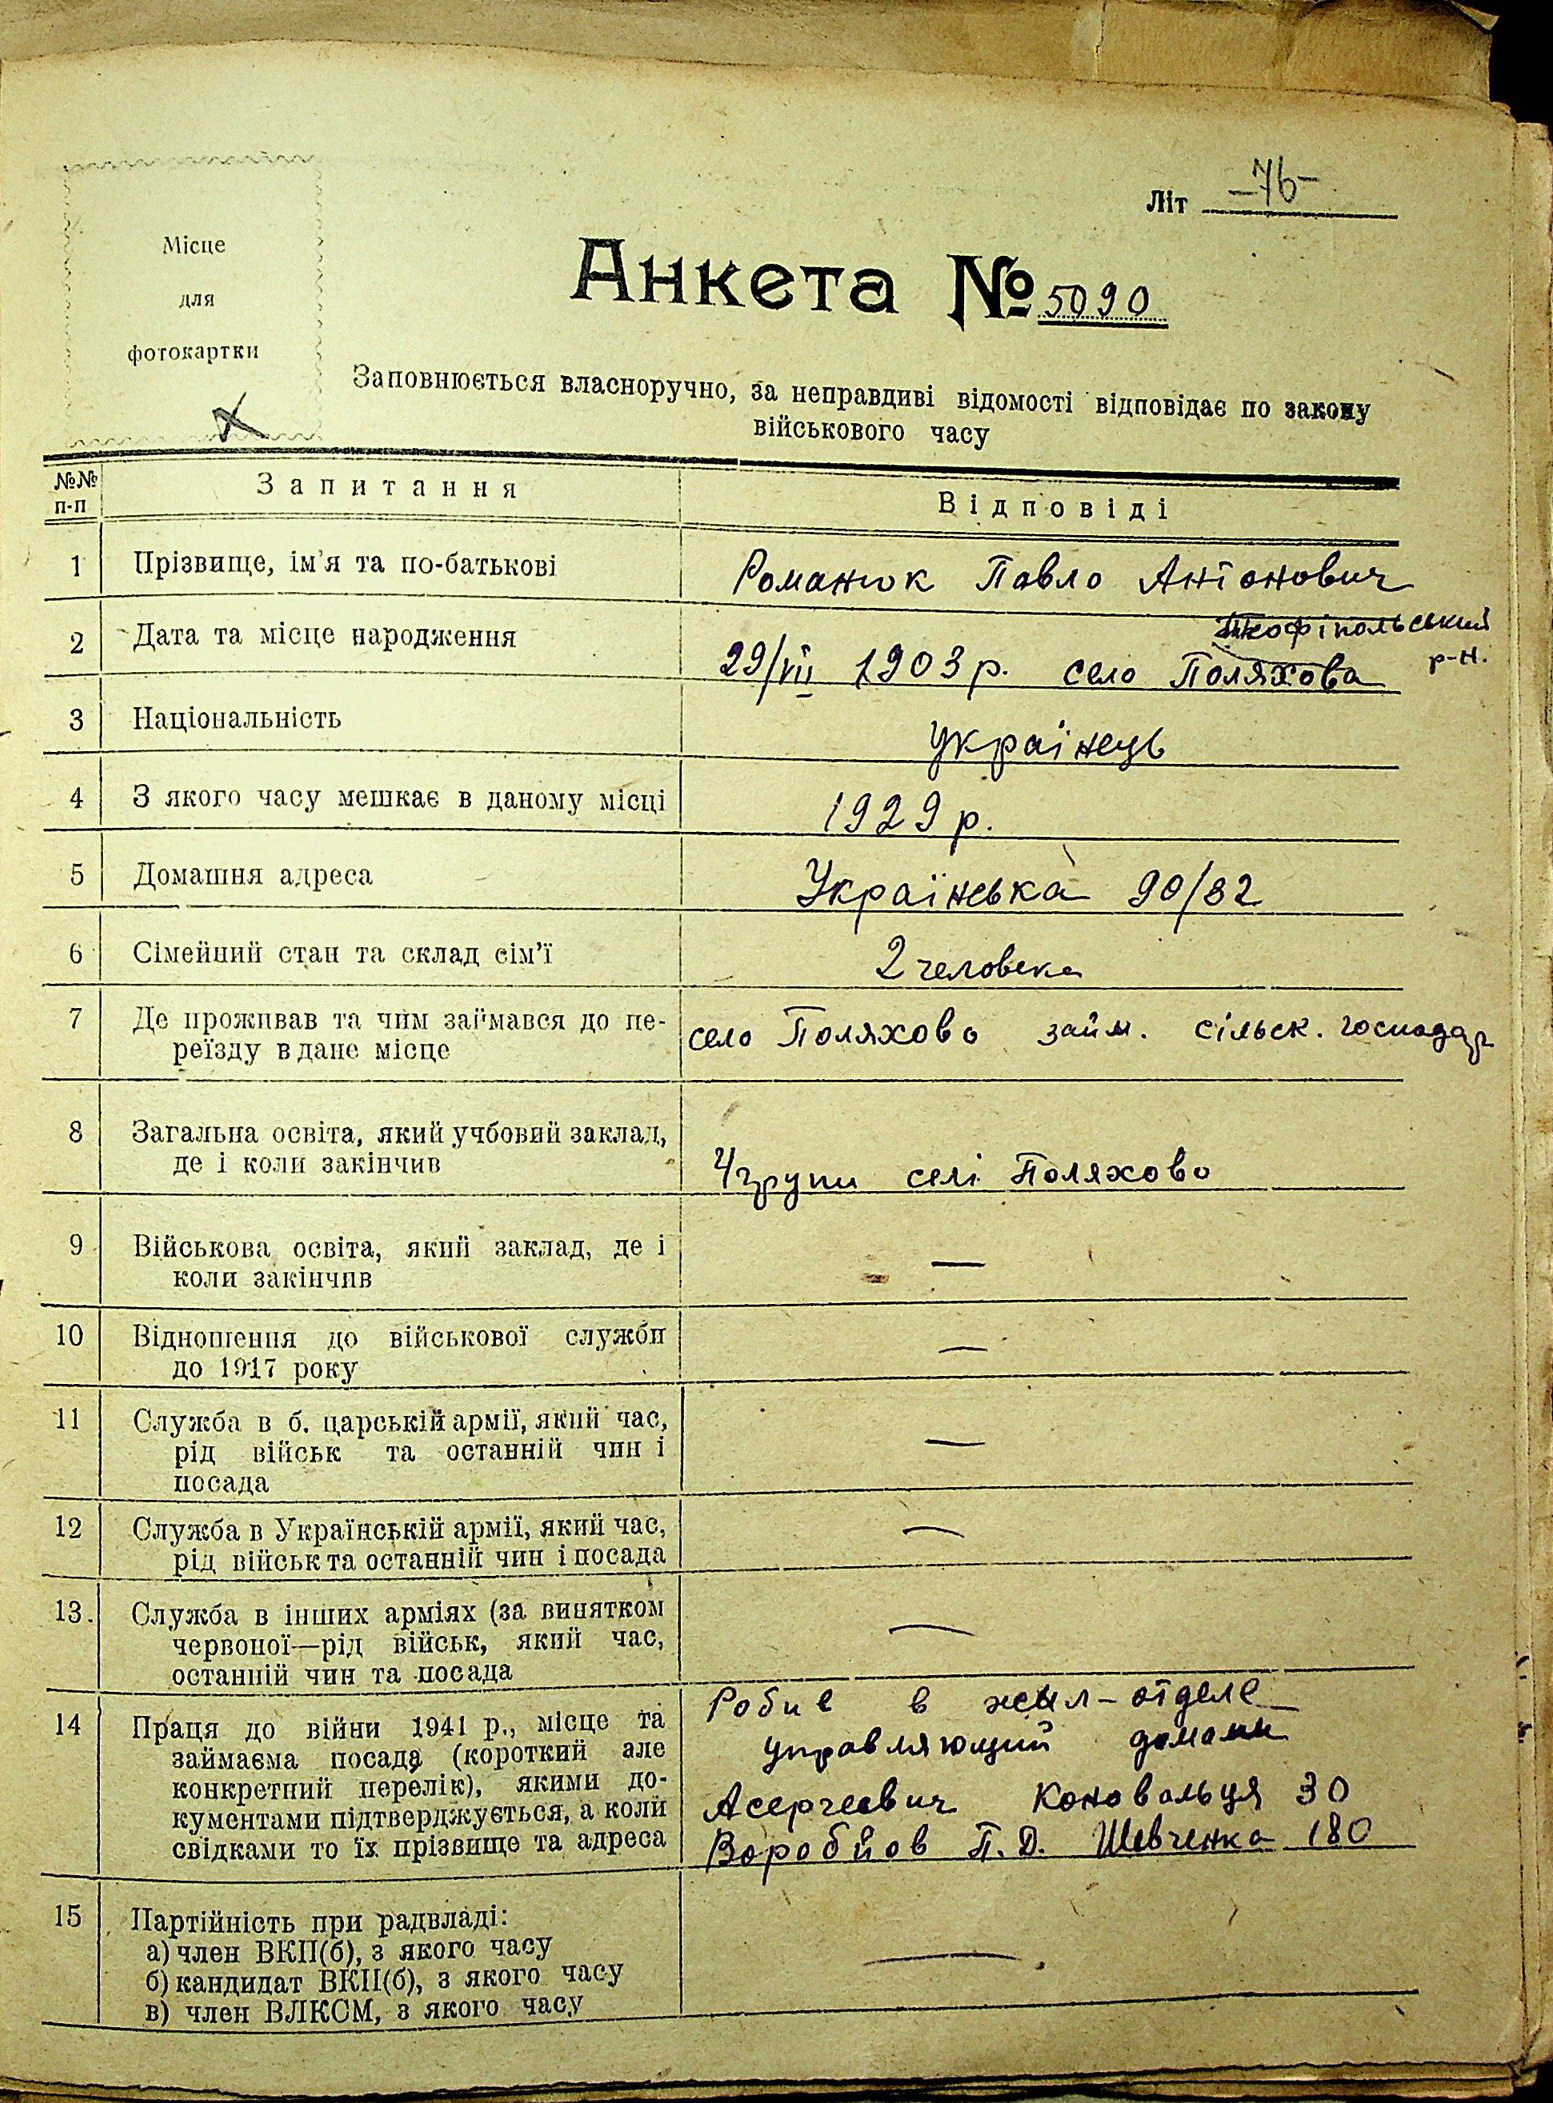 Літ -76-
Місце
для
фотокартки
Анкета № 5090
Заповнюється власноручно, за неправдиві відомості відповідає по закону
військового часу
№№ п-п Запитання Відповіді
1 Прізвище, ім'я та по-батькові Романюк Павло Антонович
2 Дата та місце народження 29/VII 1903 р. село Поляхова
р-н.
3 Національність українець
4 З якого часу мешкає в даному місці 1929 р.
5 Домашня адреса Українська 90/82
6 Сімейний стан та склад сім'ї 2 человека
7 Де проживав та чим займався до пе-
реїзду в дане місце село Поляхово займ. сільск. господар
8 Загальна освіта, який учбовий заклад,
де і коли закінчив 4 групи селі Поляхово
9 Військова освіта, який заклад, де і
коли закінчив —
10 Відношення до військової служби
до 1917 року —
11 Служба в б. царській армії, який час,
рід військ та останній чин і
посада —
12 Служба в Українській армії, який час,
рід військ та останній чин і посада —
13. Служба в інших арміях (за винятком
червоної—рід військ, який час,
останній чин та посада —
14 Праця до війни 1941 р., місце та
займаєма посада (короткий але
конкретний перелік), якими до-
кументами підтверджується, а коли
свідками то їх прізвище та адреса
Робив в жил-отделе
управляющий домами
Асергеевич Коновальця 30
Воробйов П.Д. Шевченка 180
15 Партійність при радвладі: —
а) член ВКП(б), з якого часу
б) кандидат ВКП(б), з якого часу
в) член ВЛКСМ, з якого часу